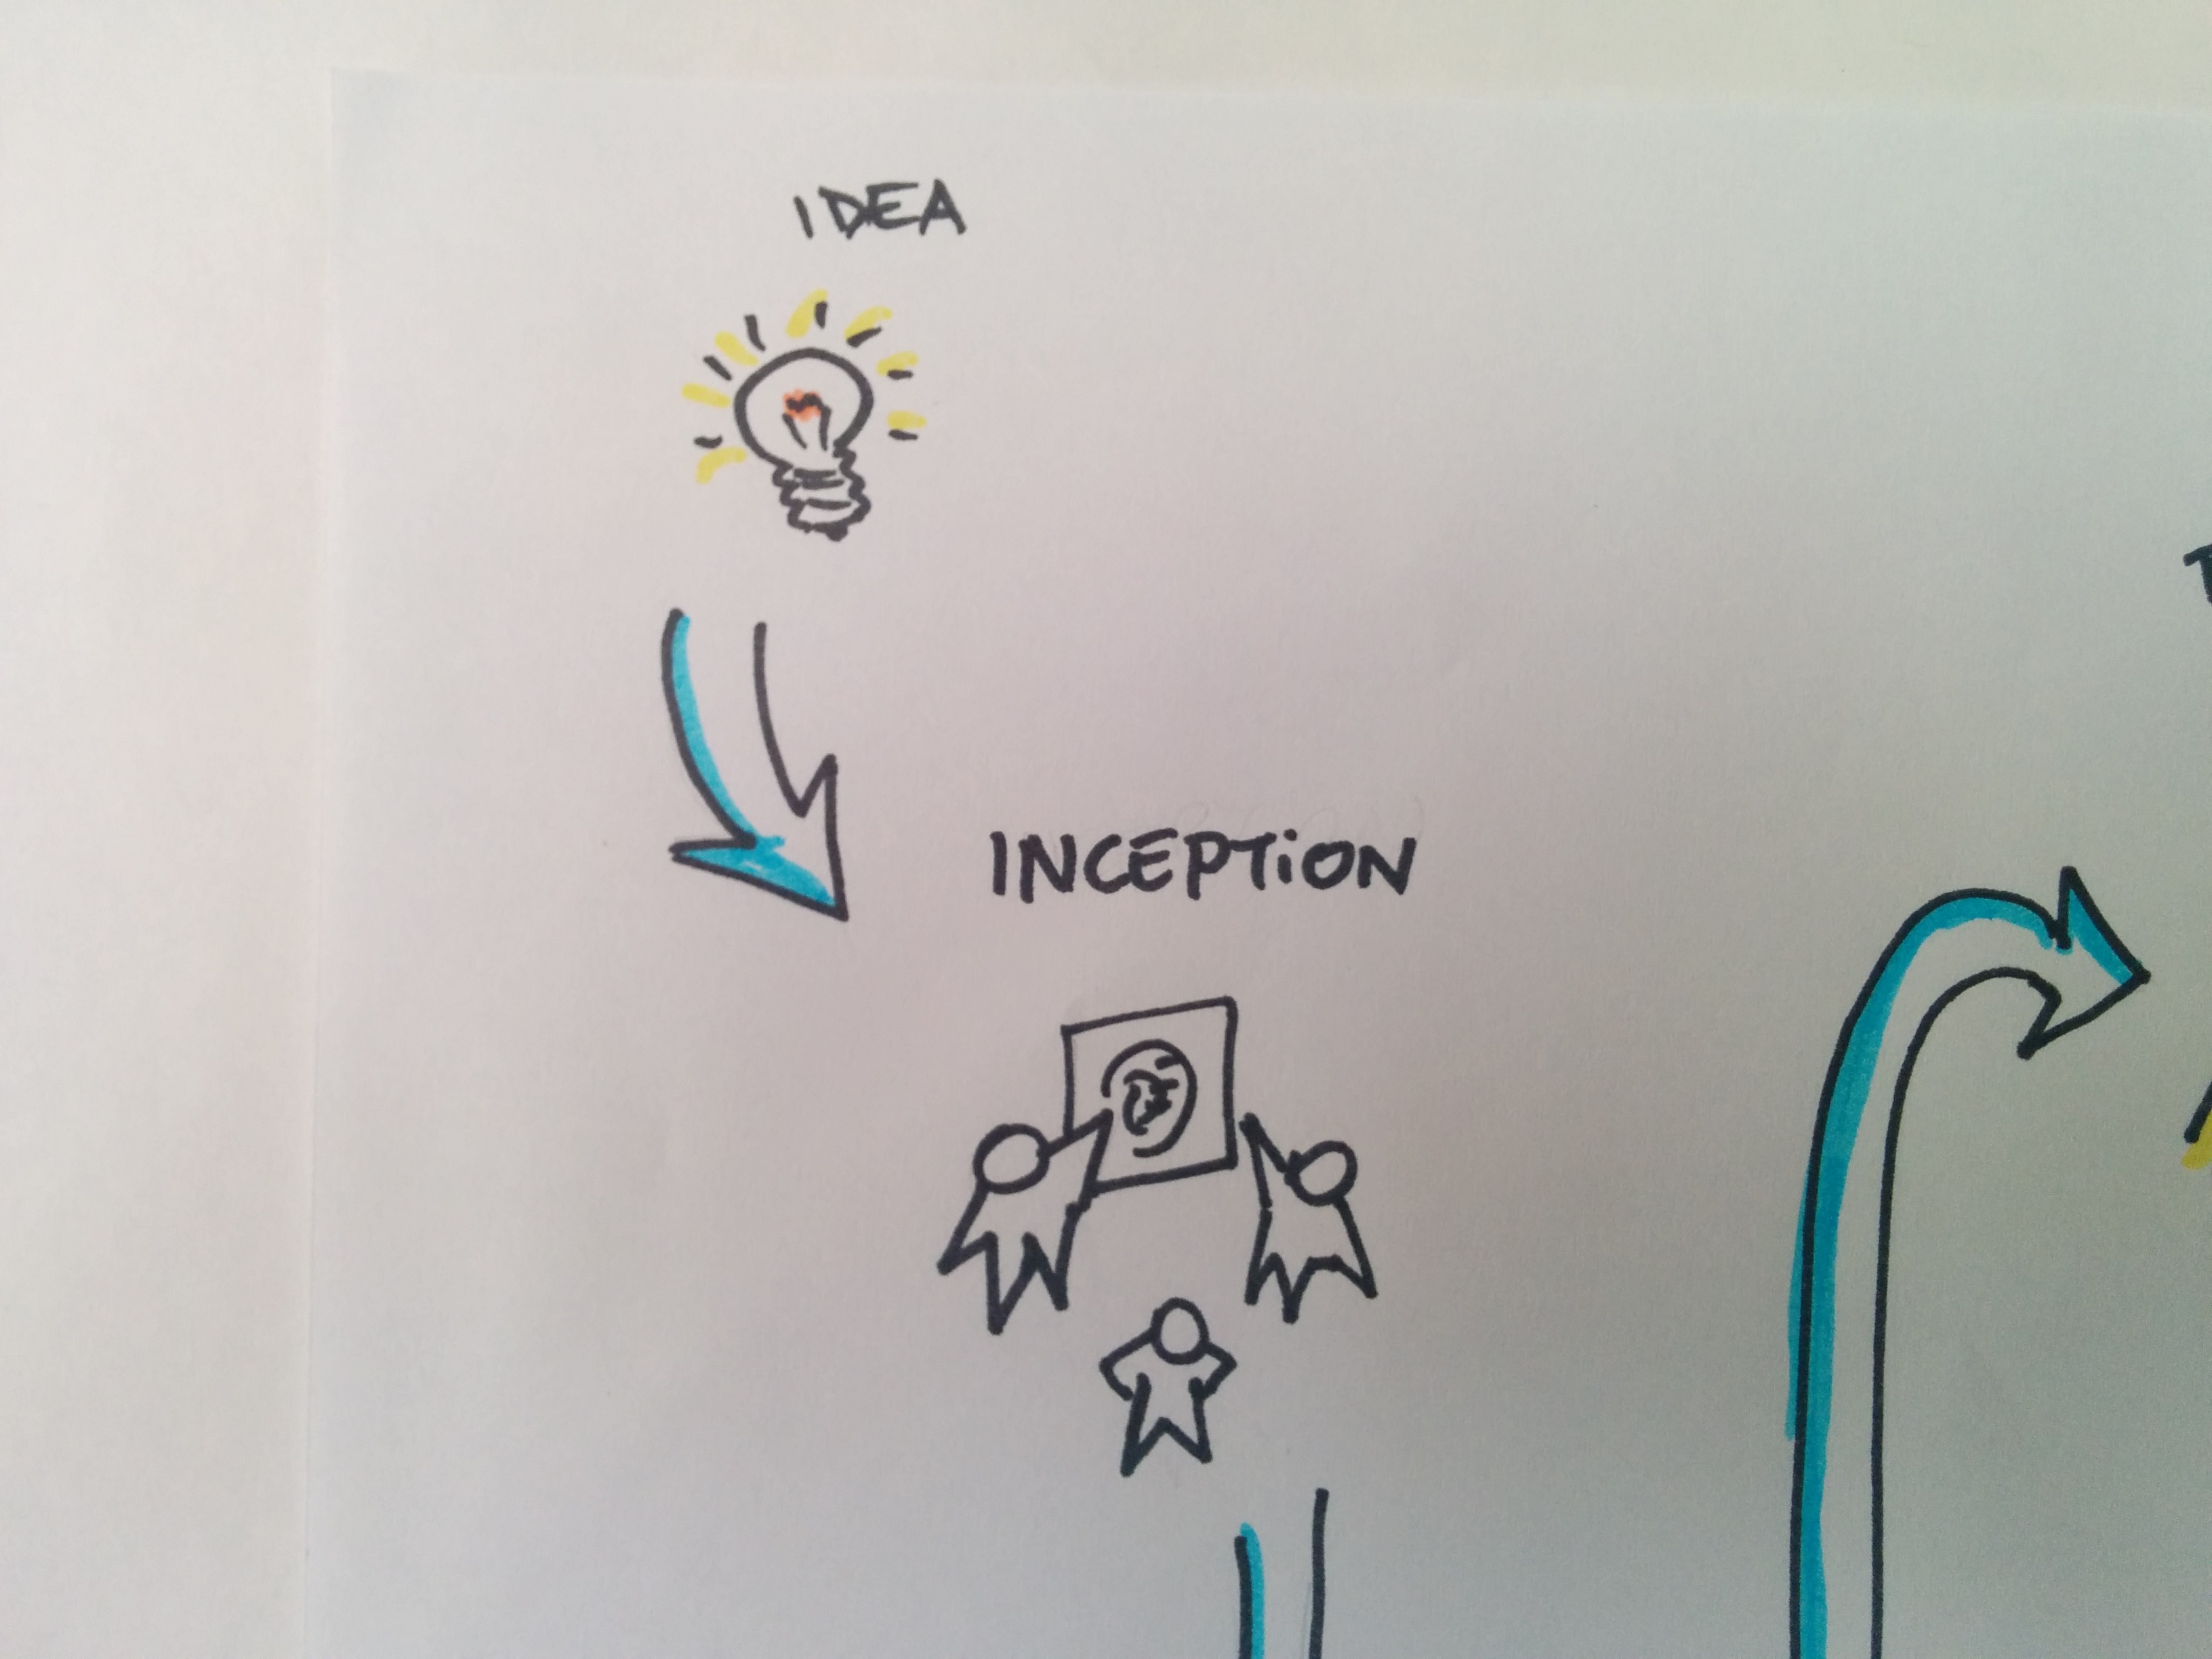 IDEA
INCEPTION